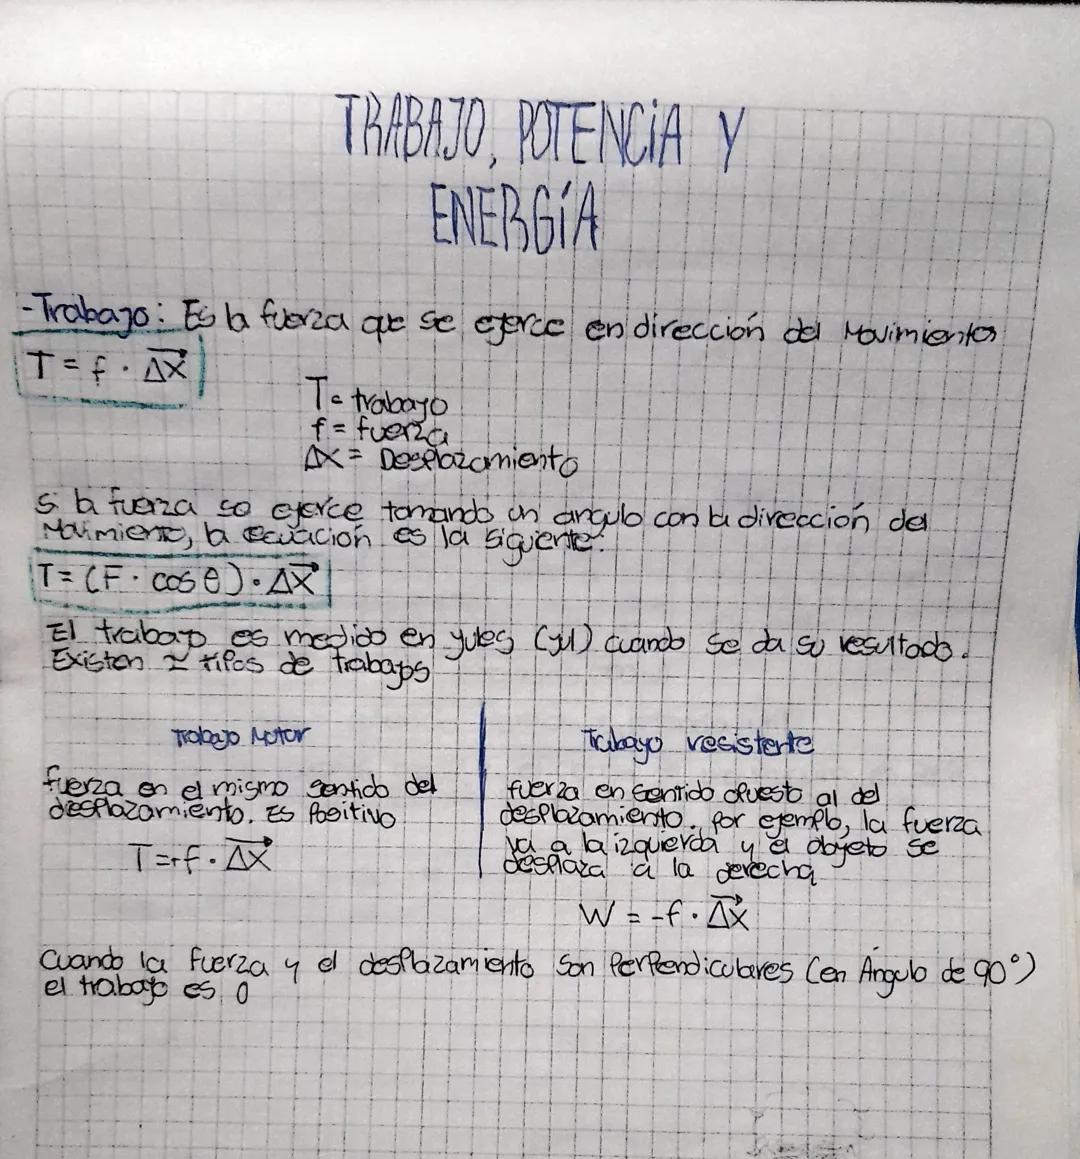 TRABAJO, POTENCIA Y
ENERGÍA
- Trabajo: Es la fuerza que se ejerce en dirección del Movimiento
T = f · Δx
T = trabajo
f = fuerza
Δx = Desplazamiento
Si la fuerza se ejerce tomando un angulo con la dirección del
Movimiento, la ecuación es la siguiente:
T = (F · cos θ) · Δx
El trabajo es medido en yules (yul) cuando se da su resultado.
Existen 2 tipos de trabajos
Trabajo Motor
fuerza en el mismo sentido del
desplazamiento. Es Positivo
T = + f · Δx
Trabajo resistente
fuerza en sentido opuesto al del
desplazamiento. por ejemplo, la fuerza
va a la izquierda y el objeto se
desplaza a la derecha
W = -f · Δx
Cuando la fuerza y el desplazamiento son perpendiculares (en Ángulo de 90°)
el trabajo es 0